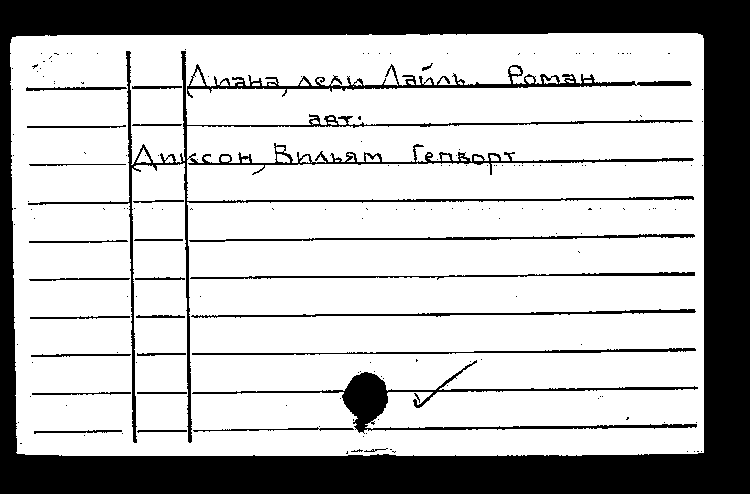 Диана, леди Лайль. Роман
авт.:
Диксон, Вильям Гепворт